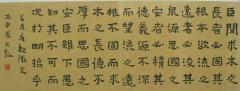 臣聞求木之
長者必固其
根本欲流之
遠者必浚其
泉源思國之
安者必積其
德義源不深
而望流之遠
根不固而求
木之長德不
厚而思國之
安臣雖下愚
知其不可而
況於明哲乎